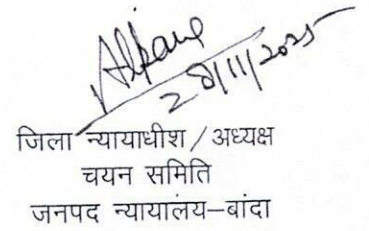 28/11/2025
जिला न्यायाधीश/अध्यक्ष
चयन समिति
जनपद न्यायालंय–बांदा